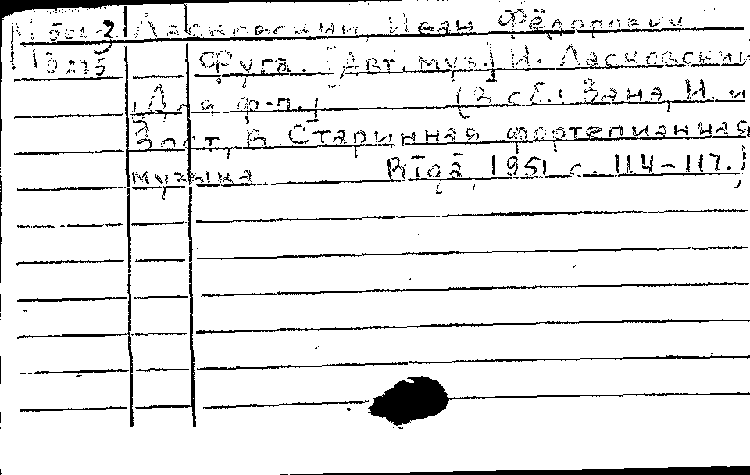 Ласковский, Иван Фёдорович
Фуга. [Авт. муз.] И. Ласковский
[Для ф-п.] (В сб.: Зана, И. и
Старинная фортепианная
музыка 1951 с. 114-117.)